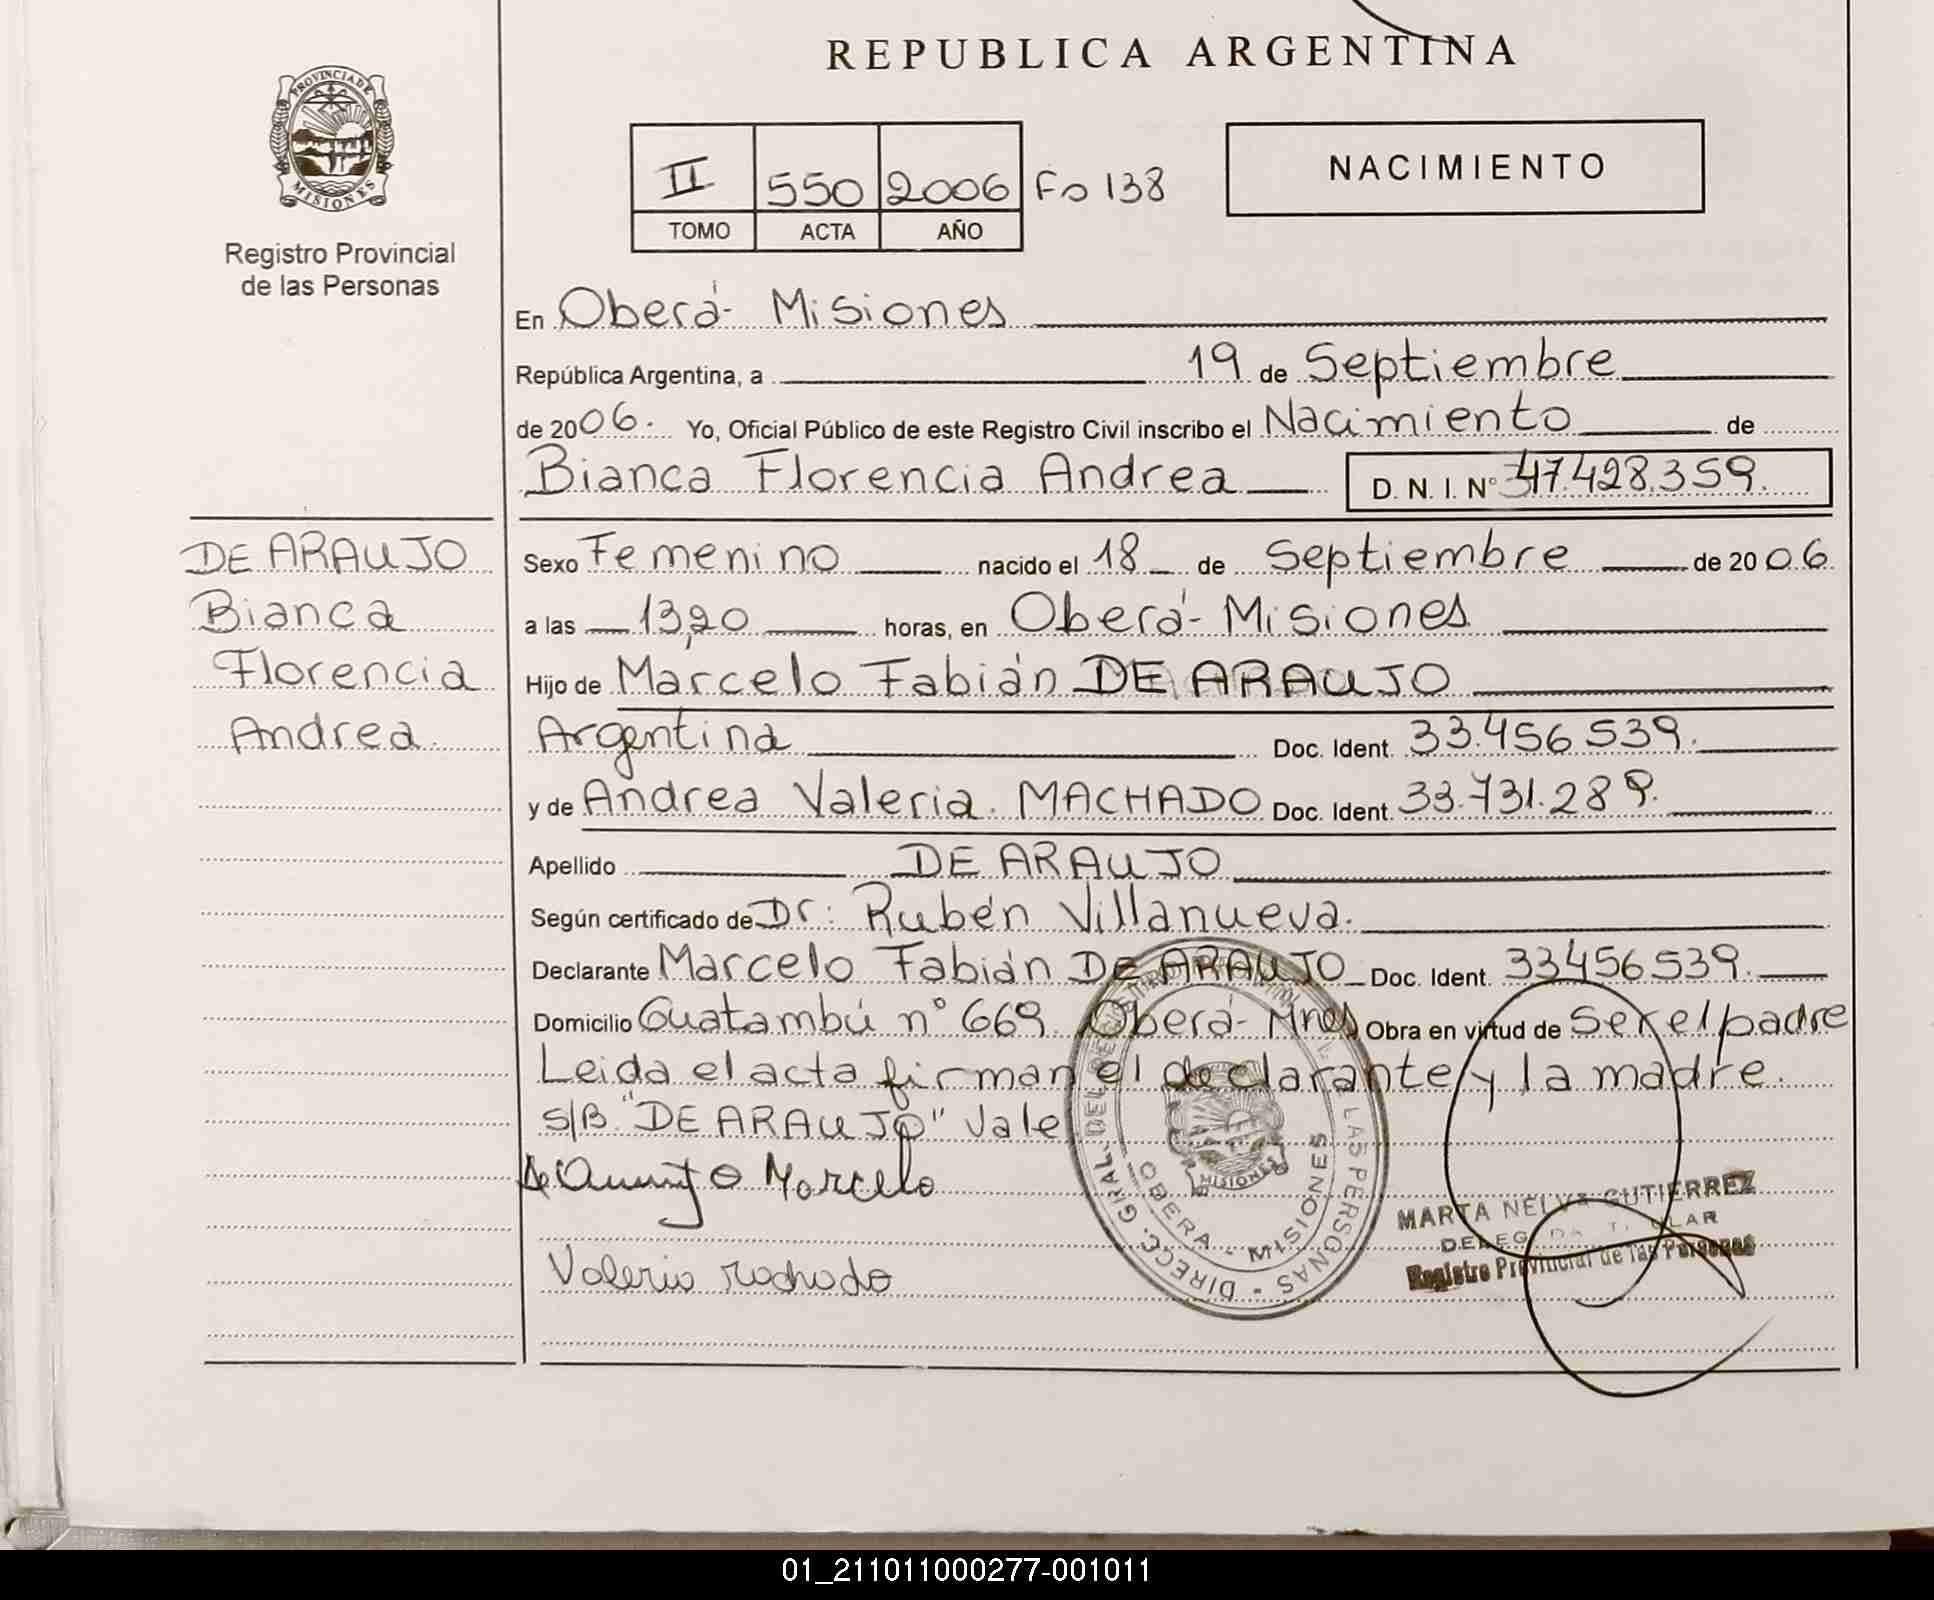 REPUBLICA ARGENTINA
PROVINCIA DE
MISIONES
Registro Provincial
de las Personas
II 550 2006 Fo 138
TOMO ACTA AÑO
NACIMIENTO
En Oberá - Misiones
República Argentina, a 19 de Septiembre
de 2006. Yo, Oficial Público de este Registro Civil inscribo el Nacimiento de
Bianca Florencia Andrea D. N. I. N° 47.428.359.
DE ARAUJO
Bianca
Florencia
Andrea.
Sexo Femenino nacido el 18 de Septiembre de 2006
a las 13,20 horas, en Oberá - Misiones
Hijo de Marcelo Fabián DE ARAUJO
Argentina Doc. Ident. 33.456539.
y de Andrea Valeria. MACHADO Doc. Ident. 33.731.289.
Apellido DE ARAUJO
Según certificado de Dr: Rubén Villanueva.
Declarante Marcelo Fabián DE ARAUJO Doc. Ident. 33456539.
Domicilio Guatambú n° 669. Oberá - Mnes Obra en virtud de Ser el padre
Leida el acta firman el declarante y la madre.
S/B. "DE ARAUJO" Vale
De Araujo Marcelo
Valeria Machado
DIRECC. GRAL. DEL REGISTRO PROVINCIAL DE LAS PERSONAS -
OBERA - MISIONES
MISIONES
MARTA NELVA GUTIERREZ
DELEGADA TITULAR
Registro Provincial de las Personas
01_211011000277-001011